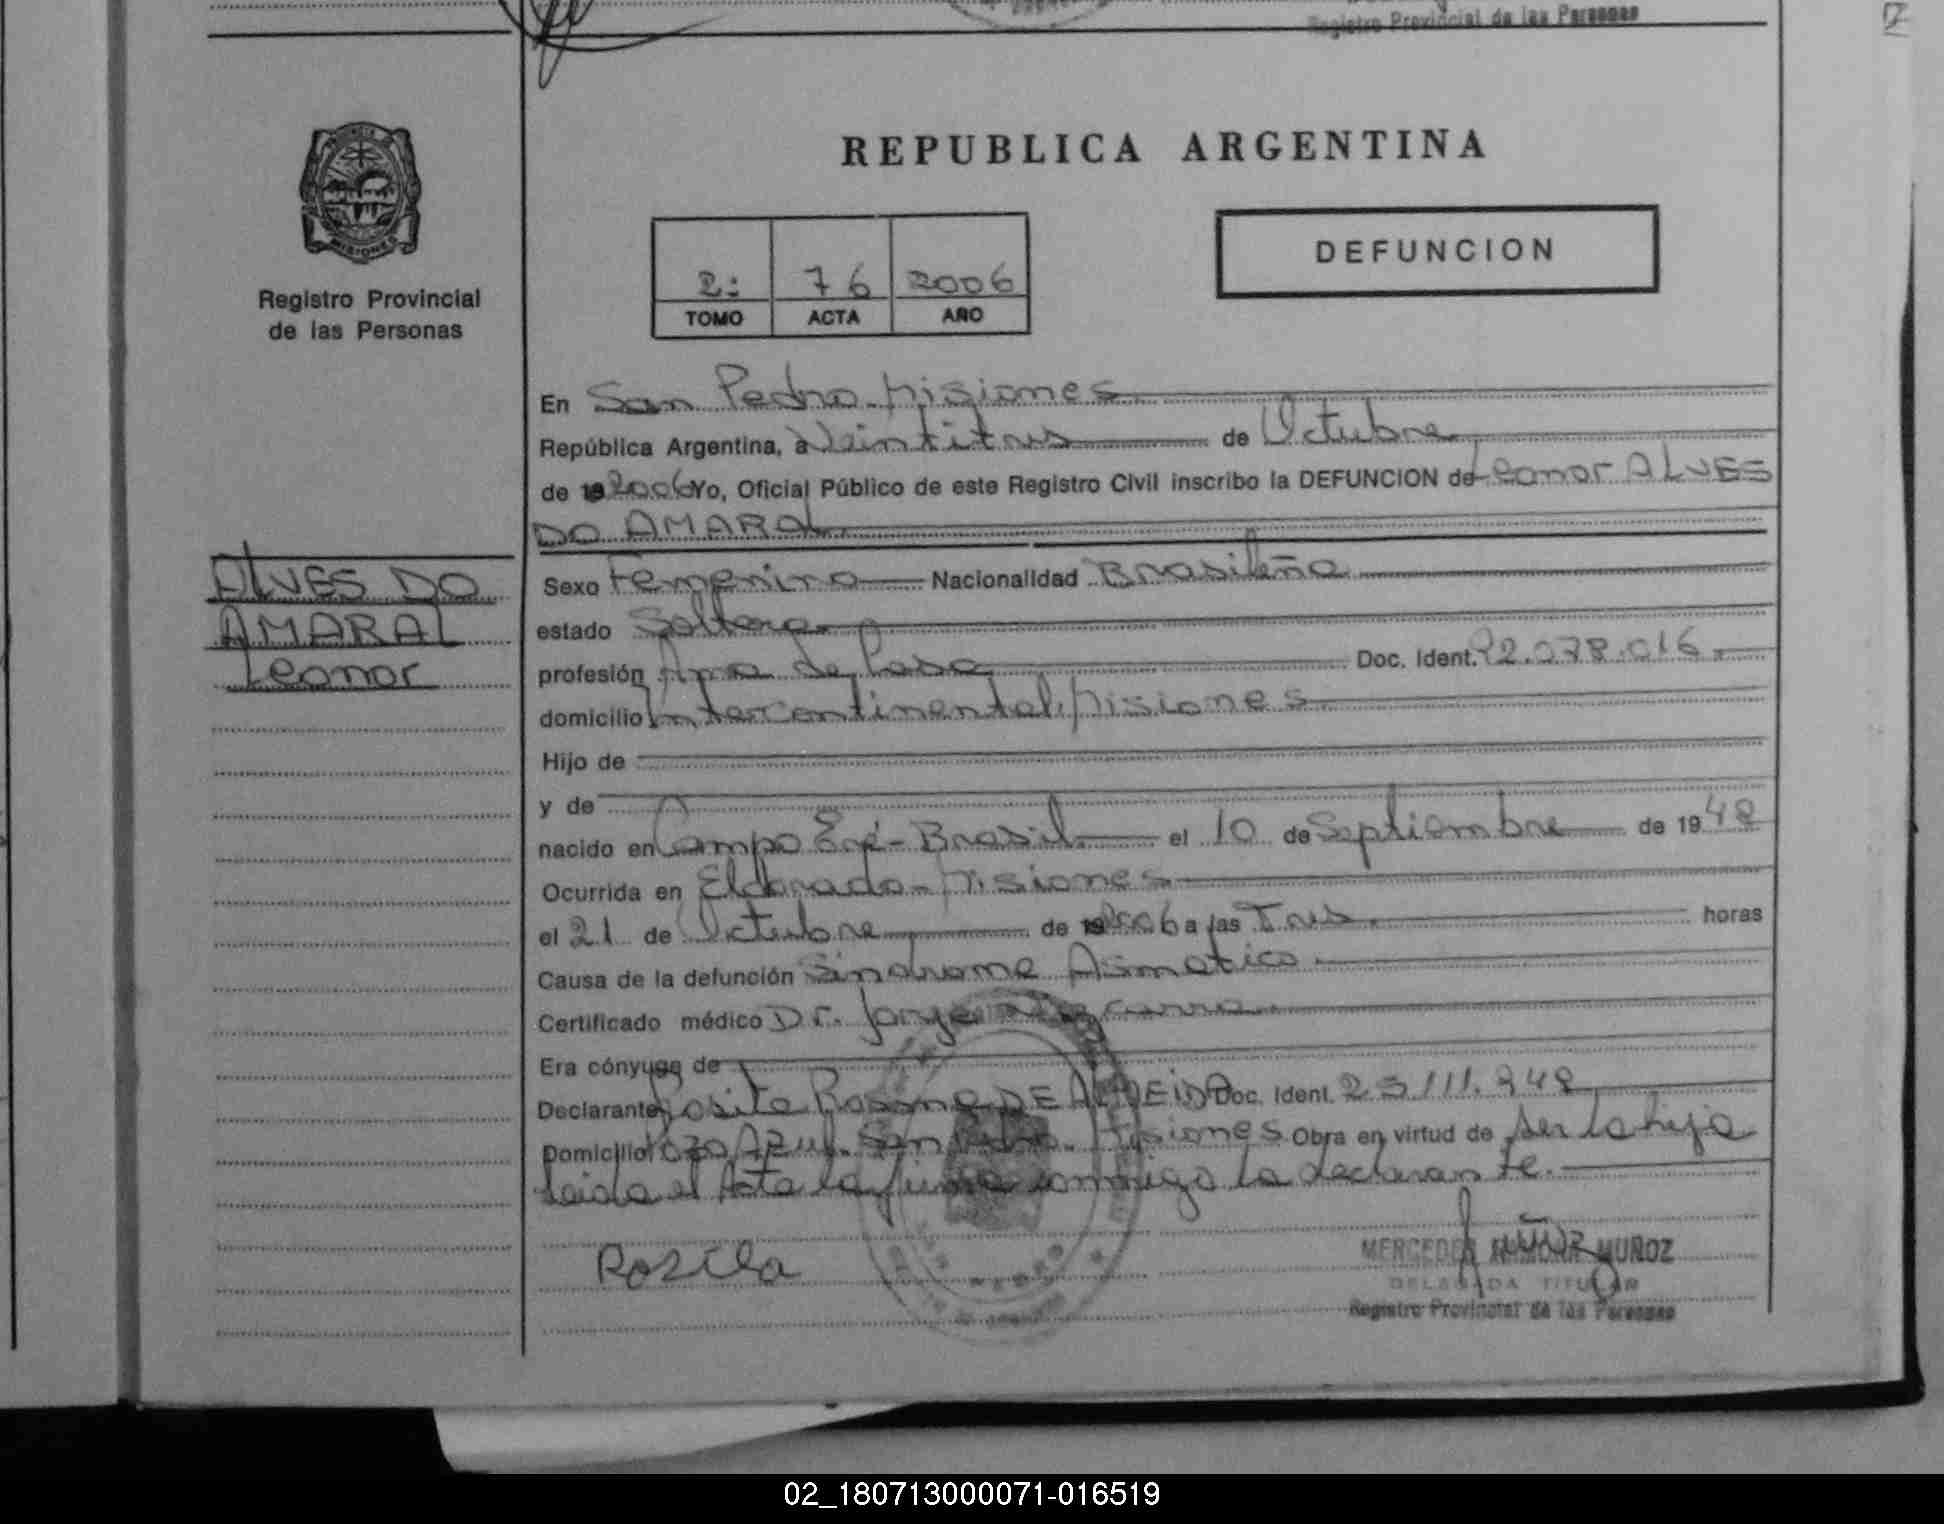 Registro Provincial de las Personas
MISIONES
Registro Provincial
de las Personas
REPUBLICA ARGENTINA
2: 76 2006
TOMO ACTA AÑO
DEFUNCION
En San Pedro. Misiones
República Argentina, a Veintitres de Octubre
de 19 2006 Yo, Oficial Público de este Registro Civil inscribo la DEFUNCION de Leonor ALVES
DO AMARAL.
ALVES DO
AMARAL
Leonor
Sexo Femenino Nacionalidad Brasileña
estado Soltera.
profesión Ama de Casa Doc. Ident. 92.078.016.
domicilio Intercontinental. Misiones
Hijo de
y de
nacido en Campo Eré - Brasil. el 10 de Septiembre de 19 48
Ocurrida en Eldorado - Misiones
el 21 de Octubre de 19 2006 a las Tres. horas
Causa de la defunción Sindrome Asmatico.
Certificado médico Dr. Jorge
Era cónyuge de
Declarante Rosane DE ALMEIDA Doc. Ident. 23.111.948
Domicilio Pozo Azul. San Pedro. Misiones Obra en virtud de ser la hija
leida el Acta la firma conmigo la declarante.
Rosila
MERCEDES RAMONA MUÑOZ
DELEGADA TITULAR
Registro Provincial de las Personas
02_180713000071-016519